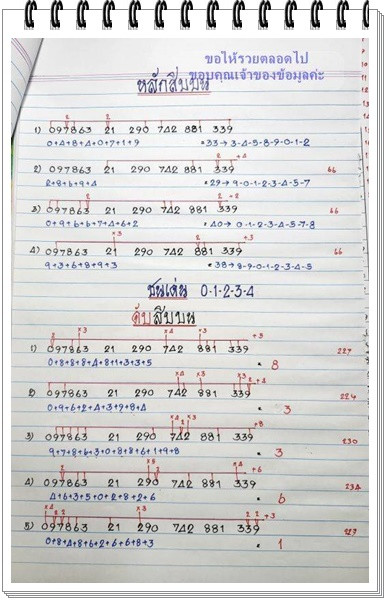 ขอให้รวยตลอดไป
ขอบคุณเจ้าของข้อมูลค่ะ
หลักสิบบน
2 2 +
1) 097863 21 290 742 881 339
0+4+8+4+0+7+1+9 = 33→ 3-4-5-8-9-0-1-2
2 +4
2) 097863 21 290 742 881 339 66
2+8+6+9+4 = 29→ 9-0-1-2-3-4-5-7
2 2 +2
3) 097863 21 290 742 881 339 66
0+9+6+6+7+4+6+2 = 40→ 0-1-2-3-4-5-7-8
×3 2 ×3
4) 097863 21 290 742 881 339 66
9+3+6+8+9+3 = 38→ 8-9-0-1-2-3-4-5
ชนเด่น 0-1-2-3-4
ดับสิบบน
×3 ×4 ×3 +3
1) 097863 21 290 742 881 339 227
0+8+8+8+4+8+1+3+3+5 = 8
×4 ×3 2 +4
2) 097863 21 290 742 881 339 224
0+9+6+2+4+3+9+8+4 = 3
×4 2 ×3 +8
3) 097863 21 290 742 881 339 230
9+7+8+6+3+0+8+8+6+1+9+8 = 3
2 2 ×5 2 ×4 +6
4) 097863 21 290 742 881 339 234
4+6+3+5+0+2+8+2+6 = 6
×4 2 2 ×3 2 2 +3
5) 097863 21 290 742 881 339
0+8+4+8+6+2+6+6+8+3 = 1